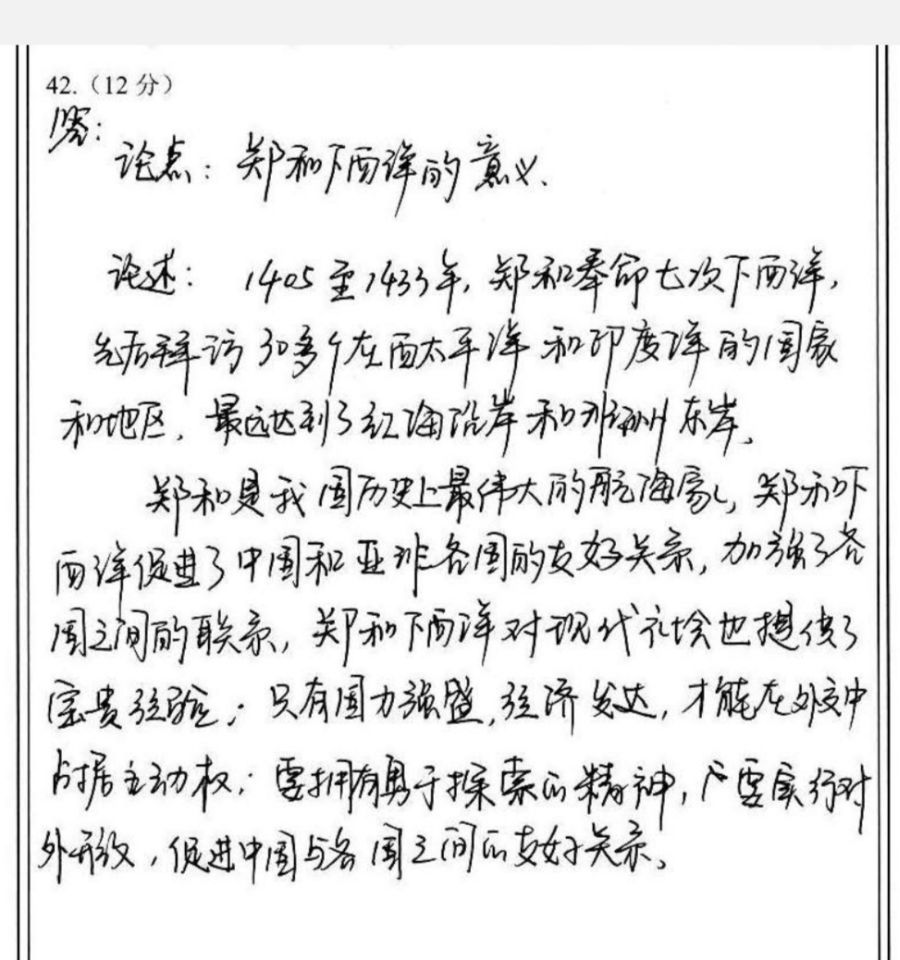 42.（12 分）
答：
论点：郑和下西洋的意义、
论述： 1405至1433年，郑和奉命七次下西洋，
先后拜访30多个在西太平洋和印度洋的国家
和地区，最远达到了红海沿岸和非洲东岸。
郑和是我国历史上最伟大的航海家，郑和下
西洋促进了中国和亚非各国的友好关系，加强了各
国之间的联系，郑和下西洋对现代社会也提供了
宝贵经验：只有国力强盛，经济发达，才能在外交中
占据主动权；要拥有勇于探索的精神，要实行对
外开放，促进中国与各国之间的友好关系。